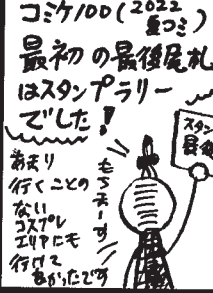 コミケ100(2022
夏コミ)
最初の最後尾札
はスタンプラリー
でした!
あまり
行くことの
ない
コスプレ
エリアにも
行けて
良かったです
もちまーす
スタン
最後